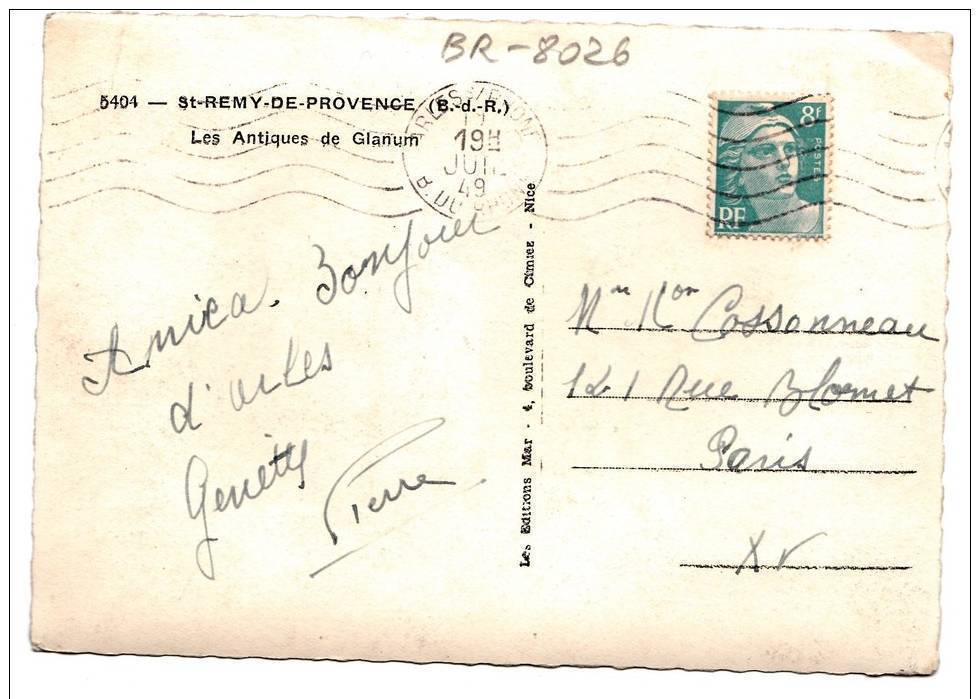 BR-8026
5404 — St-REMY-DE-PROVENCE (B.-d.-R.)
Les Antiques de Glanum
ARLES
19H
JUIL
49
8f
POSTES
RF
Amica. Bonjour
d'arles
Genetty
Pierre
Les Editions Mar - 4, boulevard de Cimiez - Nice
Cossonneau
121 Rue Blomet
Paris
XV